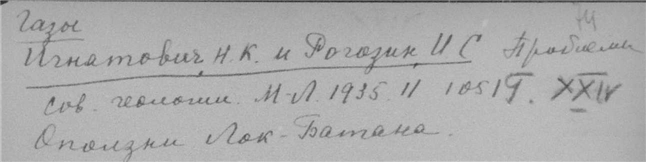 74
Газы
Игнатович, Н.К. и Рогозин, И С Проблемы
сов. геологии. М-Л. 1935. II 1051 XXIV
Оползни Лок-Батана.